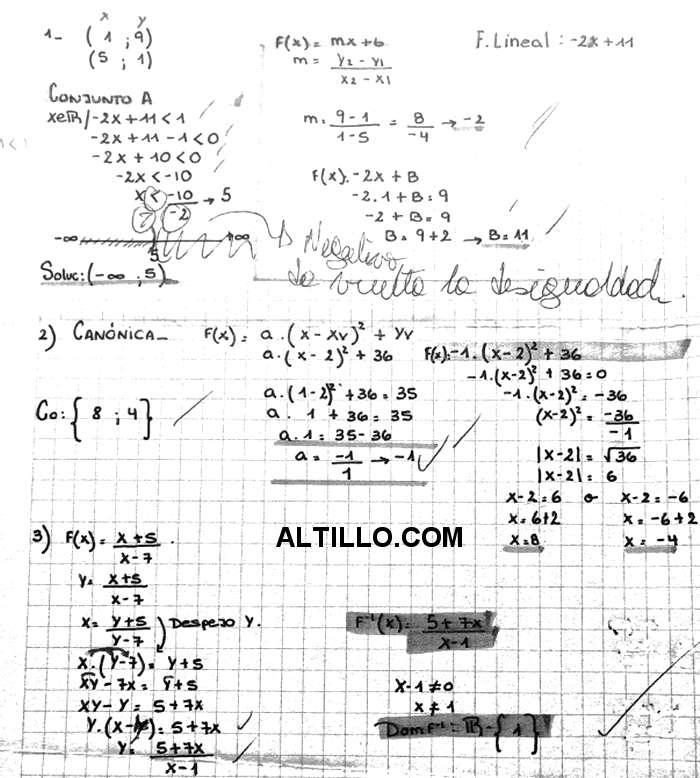 x y
1- ( 1 ; 9)
(5 ; 1)
F(x) = mx+b
m = y2 - y1
x2 - x1
F. Lineal : -2x + 11
CONJUNTO A
x∈ℝ/-2x + 11 < 1
-2x + 11 - 1 < 0
-2x + 10 < 0
-2x < -10
x < -10 → 5
-2
m = 9-1 = 8 → -2
1-5 -4
F(x): -2x + B
-2.1 + B = 9
-2 + B = 9
B = 9+2 → B = 11
-∞ +∞
5
Soluc: (-∞ ; 5)
Negativo
da vuelta la desigualdad.
2) CANÓNICA_ F(x) = a . (x - xv)² + yv
a . (x - 2)² + 36
a . (1-2)² + 36 = 35
a . 1 + 36 = 35
a . 1 = 35 - 36
a = -1 → -1
1
Co: { 8 ; 4 }
F(x): -1 . (x-2)² + 36
-1.(x-2)² + 36 = 0
-1.(x-2)² = -36
(x-2)² = -36
-1
|x-2| = √36
|x-2| = 6
x-2 = 6 o x-2 = -6
x = 6+2 x = -6+2
x = 8 x = -4
ALTILLO.COM
3) F(x) = x+5 .
x-7
y = x+5
x-7
x = y+5
y-7
DESPEJO Y.
x.(y-7) = y+5
xy - 7x = y+5
xy - y = 5+7x
y.(x-1) = 5+7x
y = 5+7x
x-1
F⁻¹(x) = 5+7x
x-1
x-1 ≠ 0
x ≠ 1
Dom F⁻¹ = ℝ - { 1 }